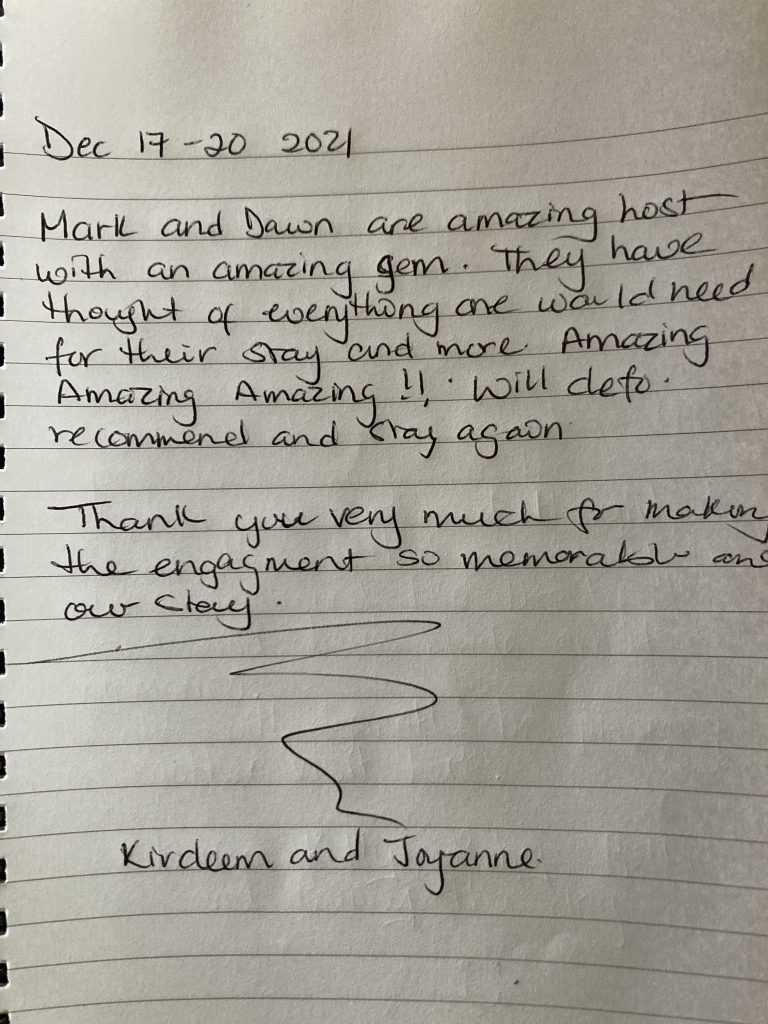 Dec 17-20 2021
Mark and Dawn are amazing host
with an amazing gem. They have
thought of everything one would need
for their stay and more. Amazing
Amazing Amazing !!! Will defo.
recommend and stay again
Thank you very much for making
the engagment so memorable and
our stay.
Kirdeem and Joyanne.